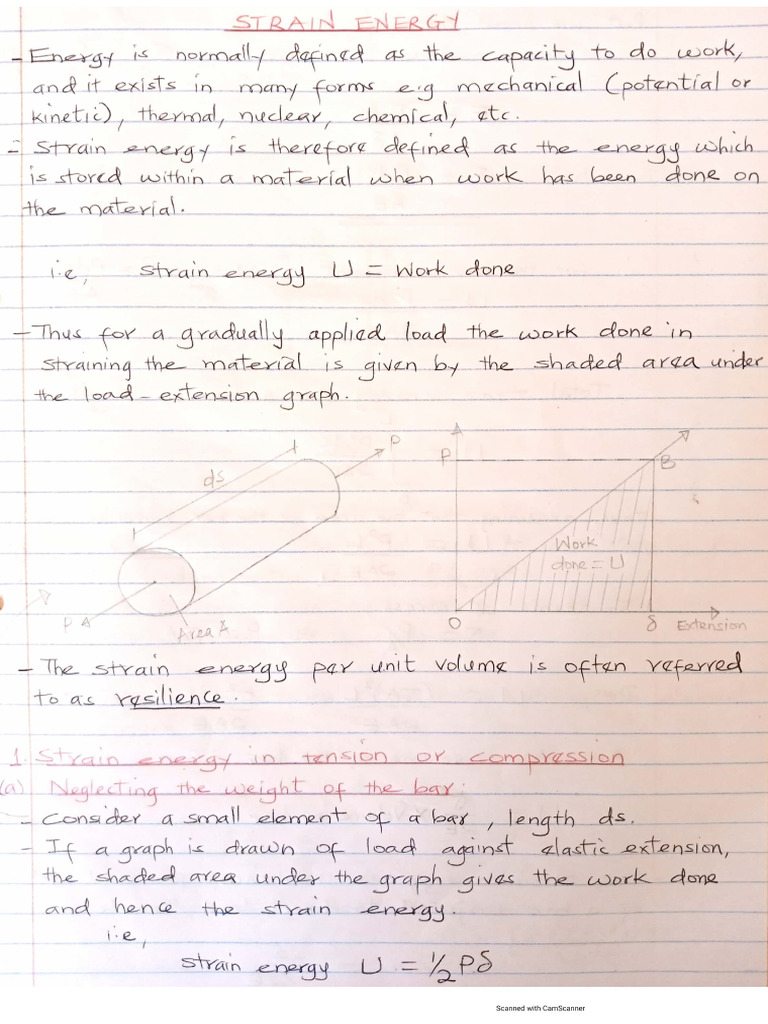 STRAIN ENERGY
- Energy is normally defined as the capacity to do work,
and it exists in many forms e.g mechanical (potential or
kinetic), thermal, nuclear, chemical, etc.
- Strain energy is therefore defined as the energy which
is stored within a material when work has been done on
the material.
i.e, strain energy U = Work done
- Thus for a gradually applied load the work done in
straining the material is given by the shaded area under
the load-extension graph.
ds
P
P
Area A
P
B
Work
done = U
O
δ
Extension
- The strain energy per unit volume is often referred
to as resilience.
1. Strain energy in tension or compression
(a) Neglecting the weight of the bar:
- Consider a small element of a bar, length ds.
- If a graph is drawn of load against elastic extension,
the shaded area under the graph gives the work done
and hence the strain energy.
i.e,
strain energy U = 1/2 Pδ
Scanned with CamScanner